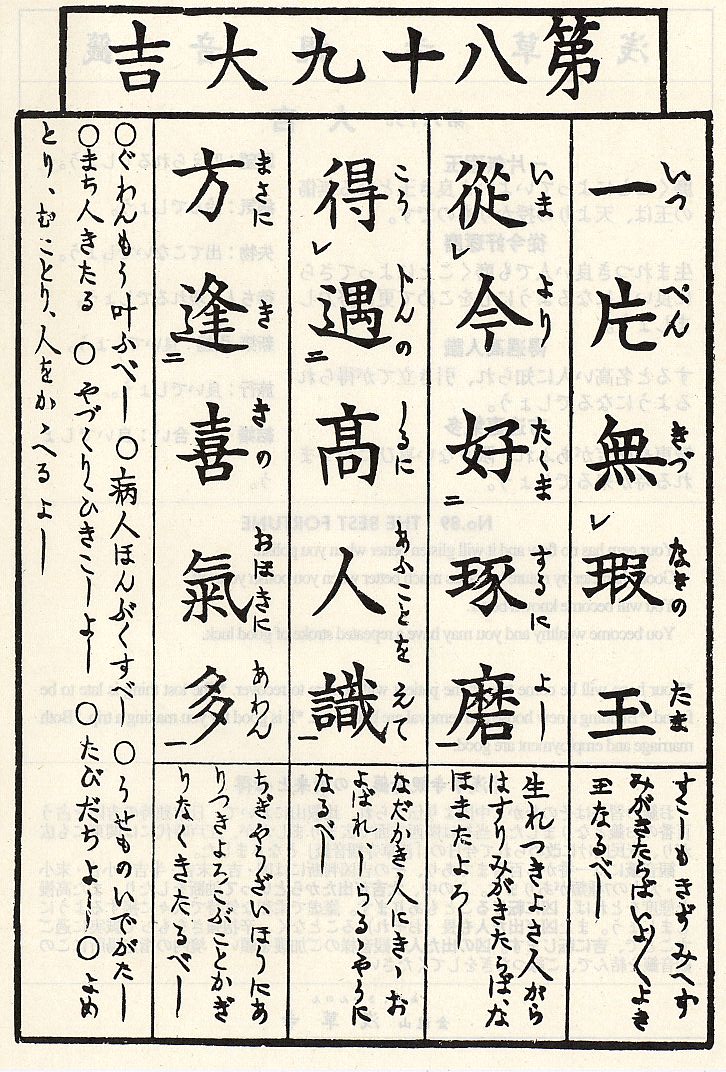 第八十九大吉
いつ ぺん きづ なきの たま
一片無レ瑕玉
すこしもきずみへず
みがきたらばいよ〳〵よき
玉なるべし
いま より たくま するに よし
從レ今好二琢磨一
生れつきよき人がら
はすりみがきたらば、な
ほまたよろし
こう じんの しるに あふことを えて
得レ遇二高人識一
なだかき人にきゝお
よばれ、しらるるやうに
なるべし
まさに き きの おほきに あわん
方逢二喜氣多一
ちぎやうざいほうにあ
りつきよろこぶことかぎ
りなくきたるべし
〇ぐわんもう叶ふべし 〇病人ほんぶくすべし 〇うせものいでがたし
〇まち人きたる 〇やづくりひきこしよし 〇たびだちよし 〇よめ
とり、むことり、人をかゝへるよし